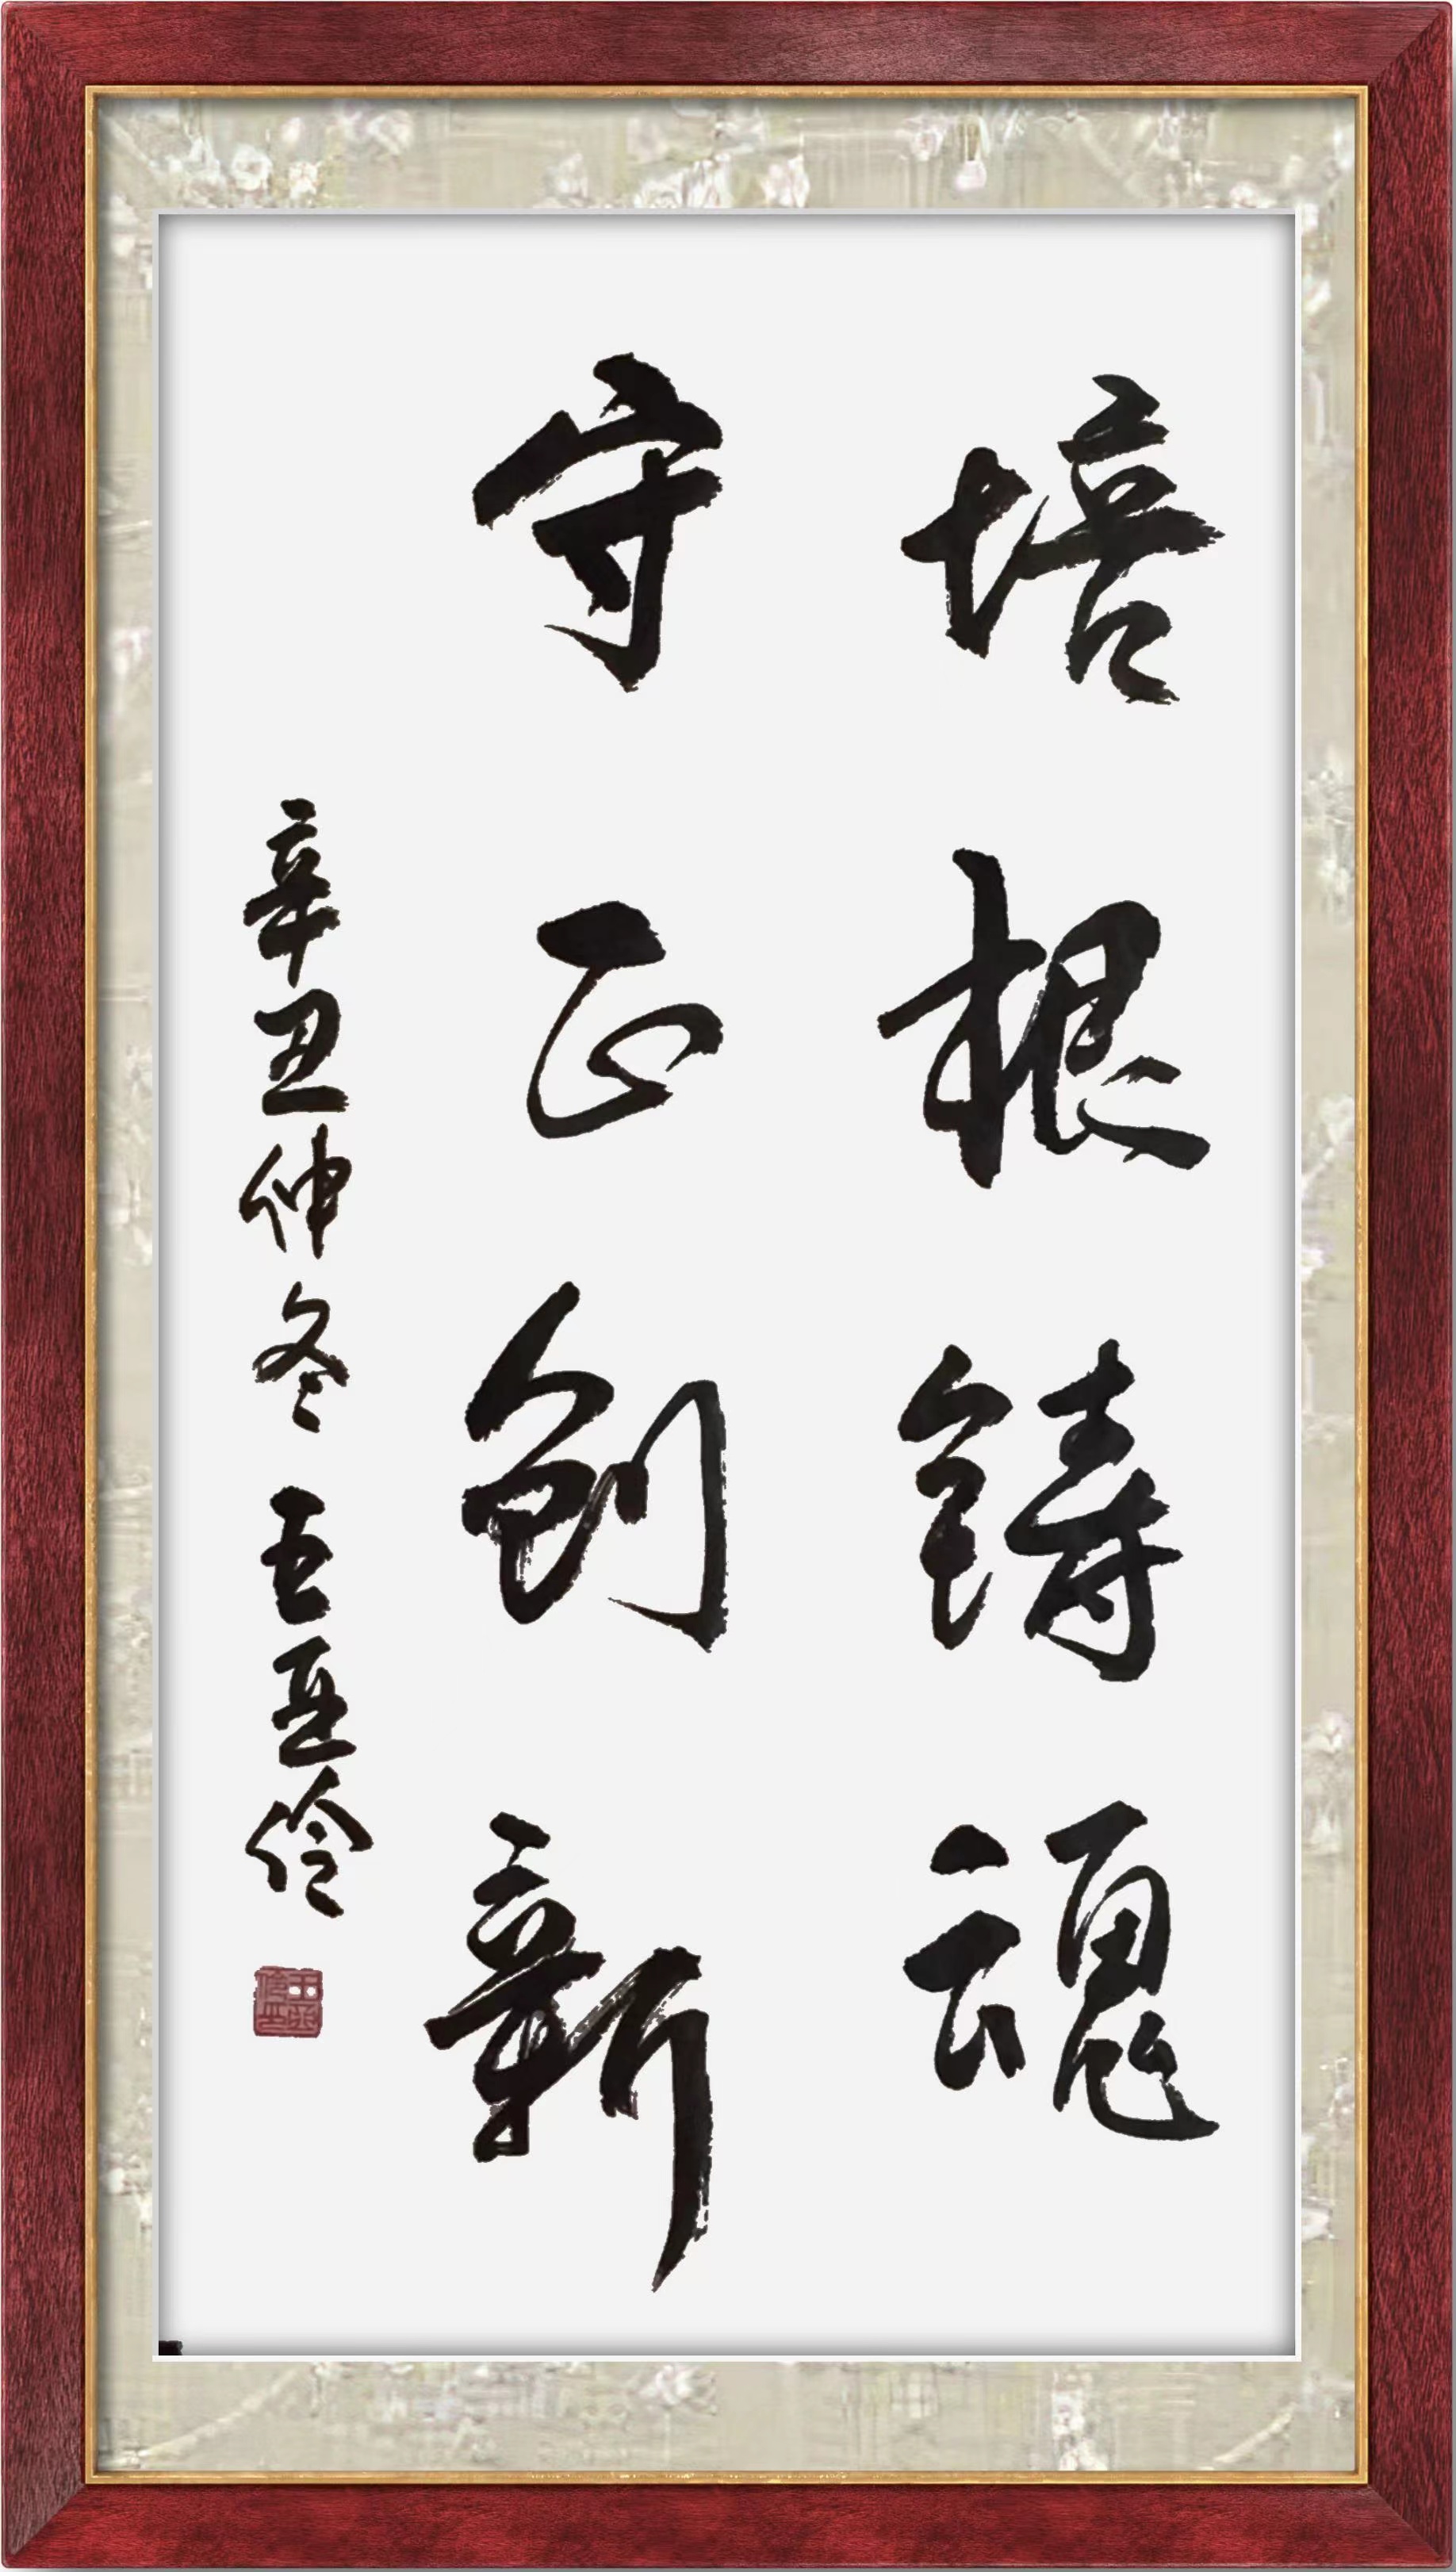 培根鑄魂
守正創新
辛丑仲冬